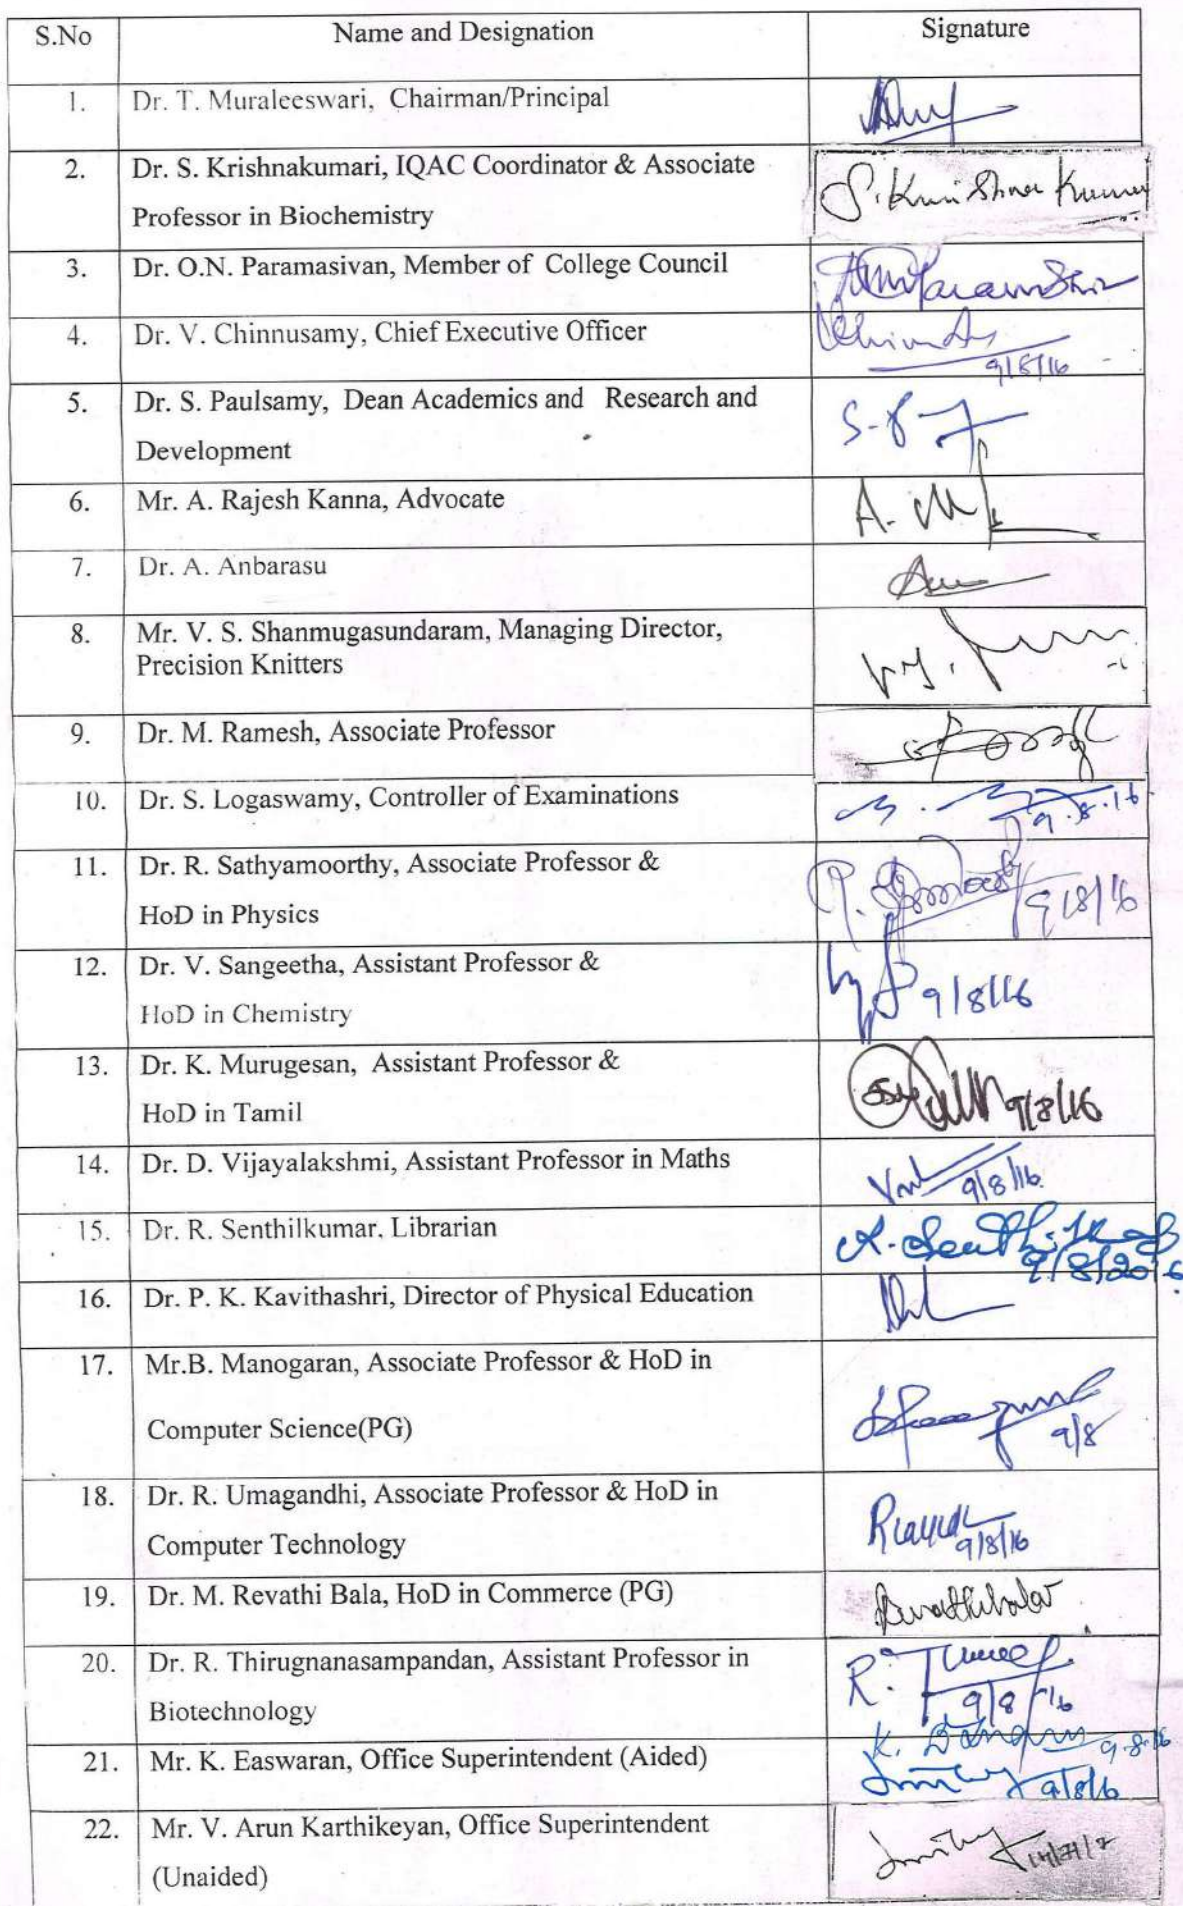 S.No Name and Designation Signature
1. Dr. T. Muraleeswari, Chairman/Principal
2. Dr. S. Krishnakumari, IQAC Coordinator & Associate
Professor in Biochemistry
3. Dr. O.N. Paramasivan, Member of College Council
4. Dr. V. Chinnusamy, Chief Executive Officer
9/8/16
5. Dr. S. Paulsamy, Dean Academics and Research and
Development
6. Mr. A. Rajesh Kanna, Advocate
7. Dr. A. Anbarasu
8. Mr. V. S. Shanmugasundaram, Managing Director,
Precision Knitters
9. Dr. M. Ramesh, Associate Professor
10. Dr. S. Logaswamy, Controller of Examinations
9.8.16
11. Dr. R. Sathyamoorthy, Associate Professor &
HoD in Physics 9/8/16
12. Dr. V. Sangeetha, Assistant Professor &
9/8/16
HoD in Chemistry
13. Dr. K. Murugesan, Assistant Professor &
HoD in Tamil 9/8/16
14. Dr. D. Vijayalakshmi, Assistant Professor in Maths
9/8/16
15. Dr. R. Senthilkumar, Librarian
9/8/2016
16. Dr. P. K. Kavithashri, Director of Physical Education
17. Mr.B. Manogaran, Associate Professor & HoD in
Computer Science(PG) 9/8
18. Dr. R. Umagandhi, Associate Professor & HoD in
Computer Technology 9/8/16
19. Dr. M. Revathi Bala, HoD in Commerce (PG)
20. Dr. R. Thirugnanasampandan, Assistant Professor in
Biotechnology 9/8/16
21. Mr. K. Easwaran, Office Superintendent (Aided) 9.8.16
9/8/16
22. Mr. V. Arun Karthikeyan, Office Superintendent
(Unaided)